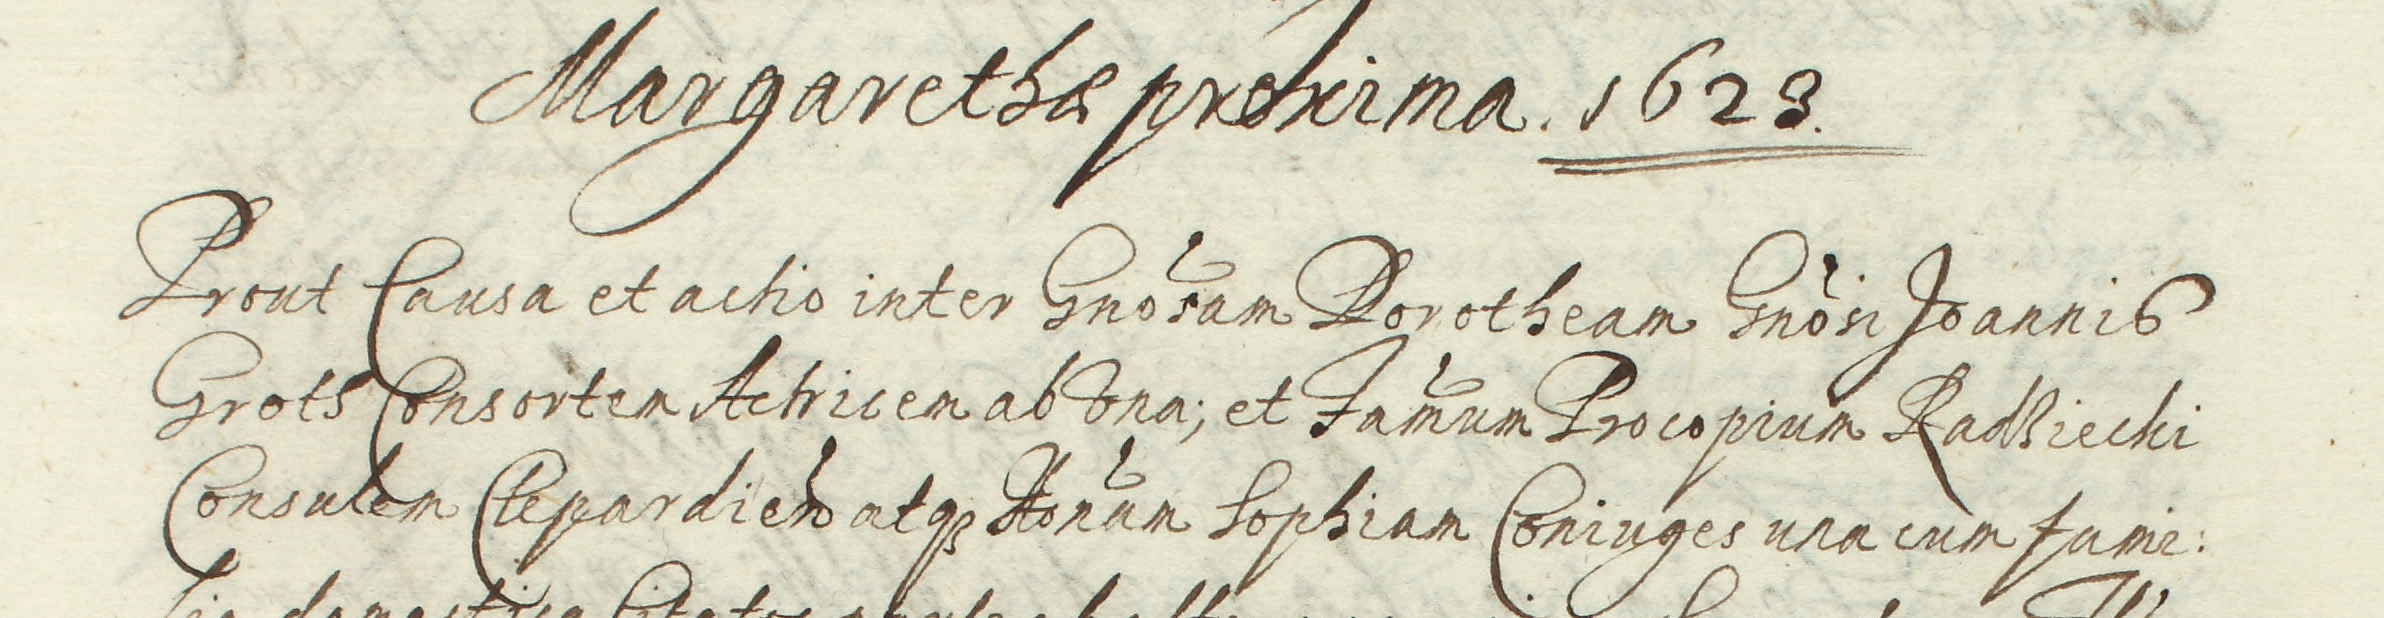 Margarethæ proxima. 1623.
Prout Causa et actio inter Gnosam Dorotheam Gnosi Joannis
Groth Consortem Actricem ab una; et Famum Procopium Radliecki
Consulem Clepardien atq Honam Sophiam Coniuges una cum fami:
lia domestica Citatos